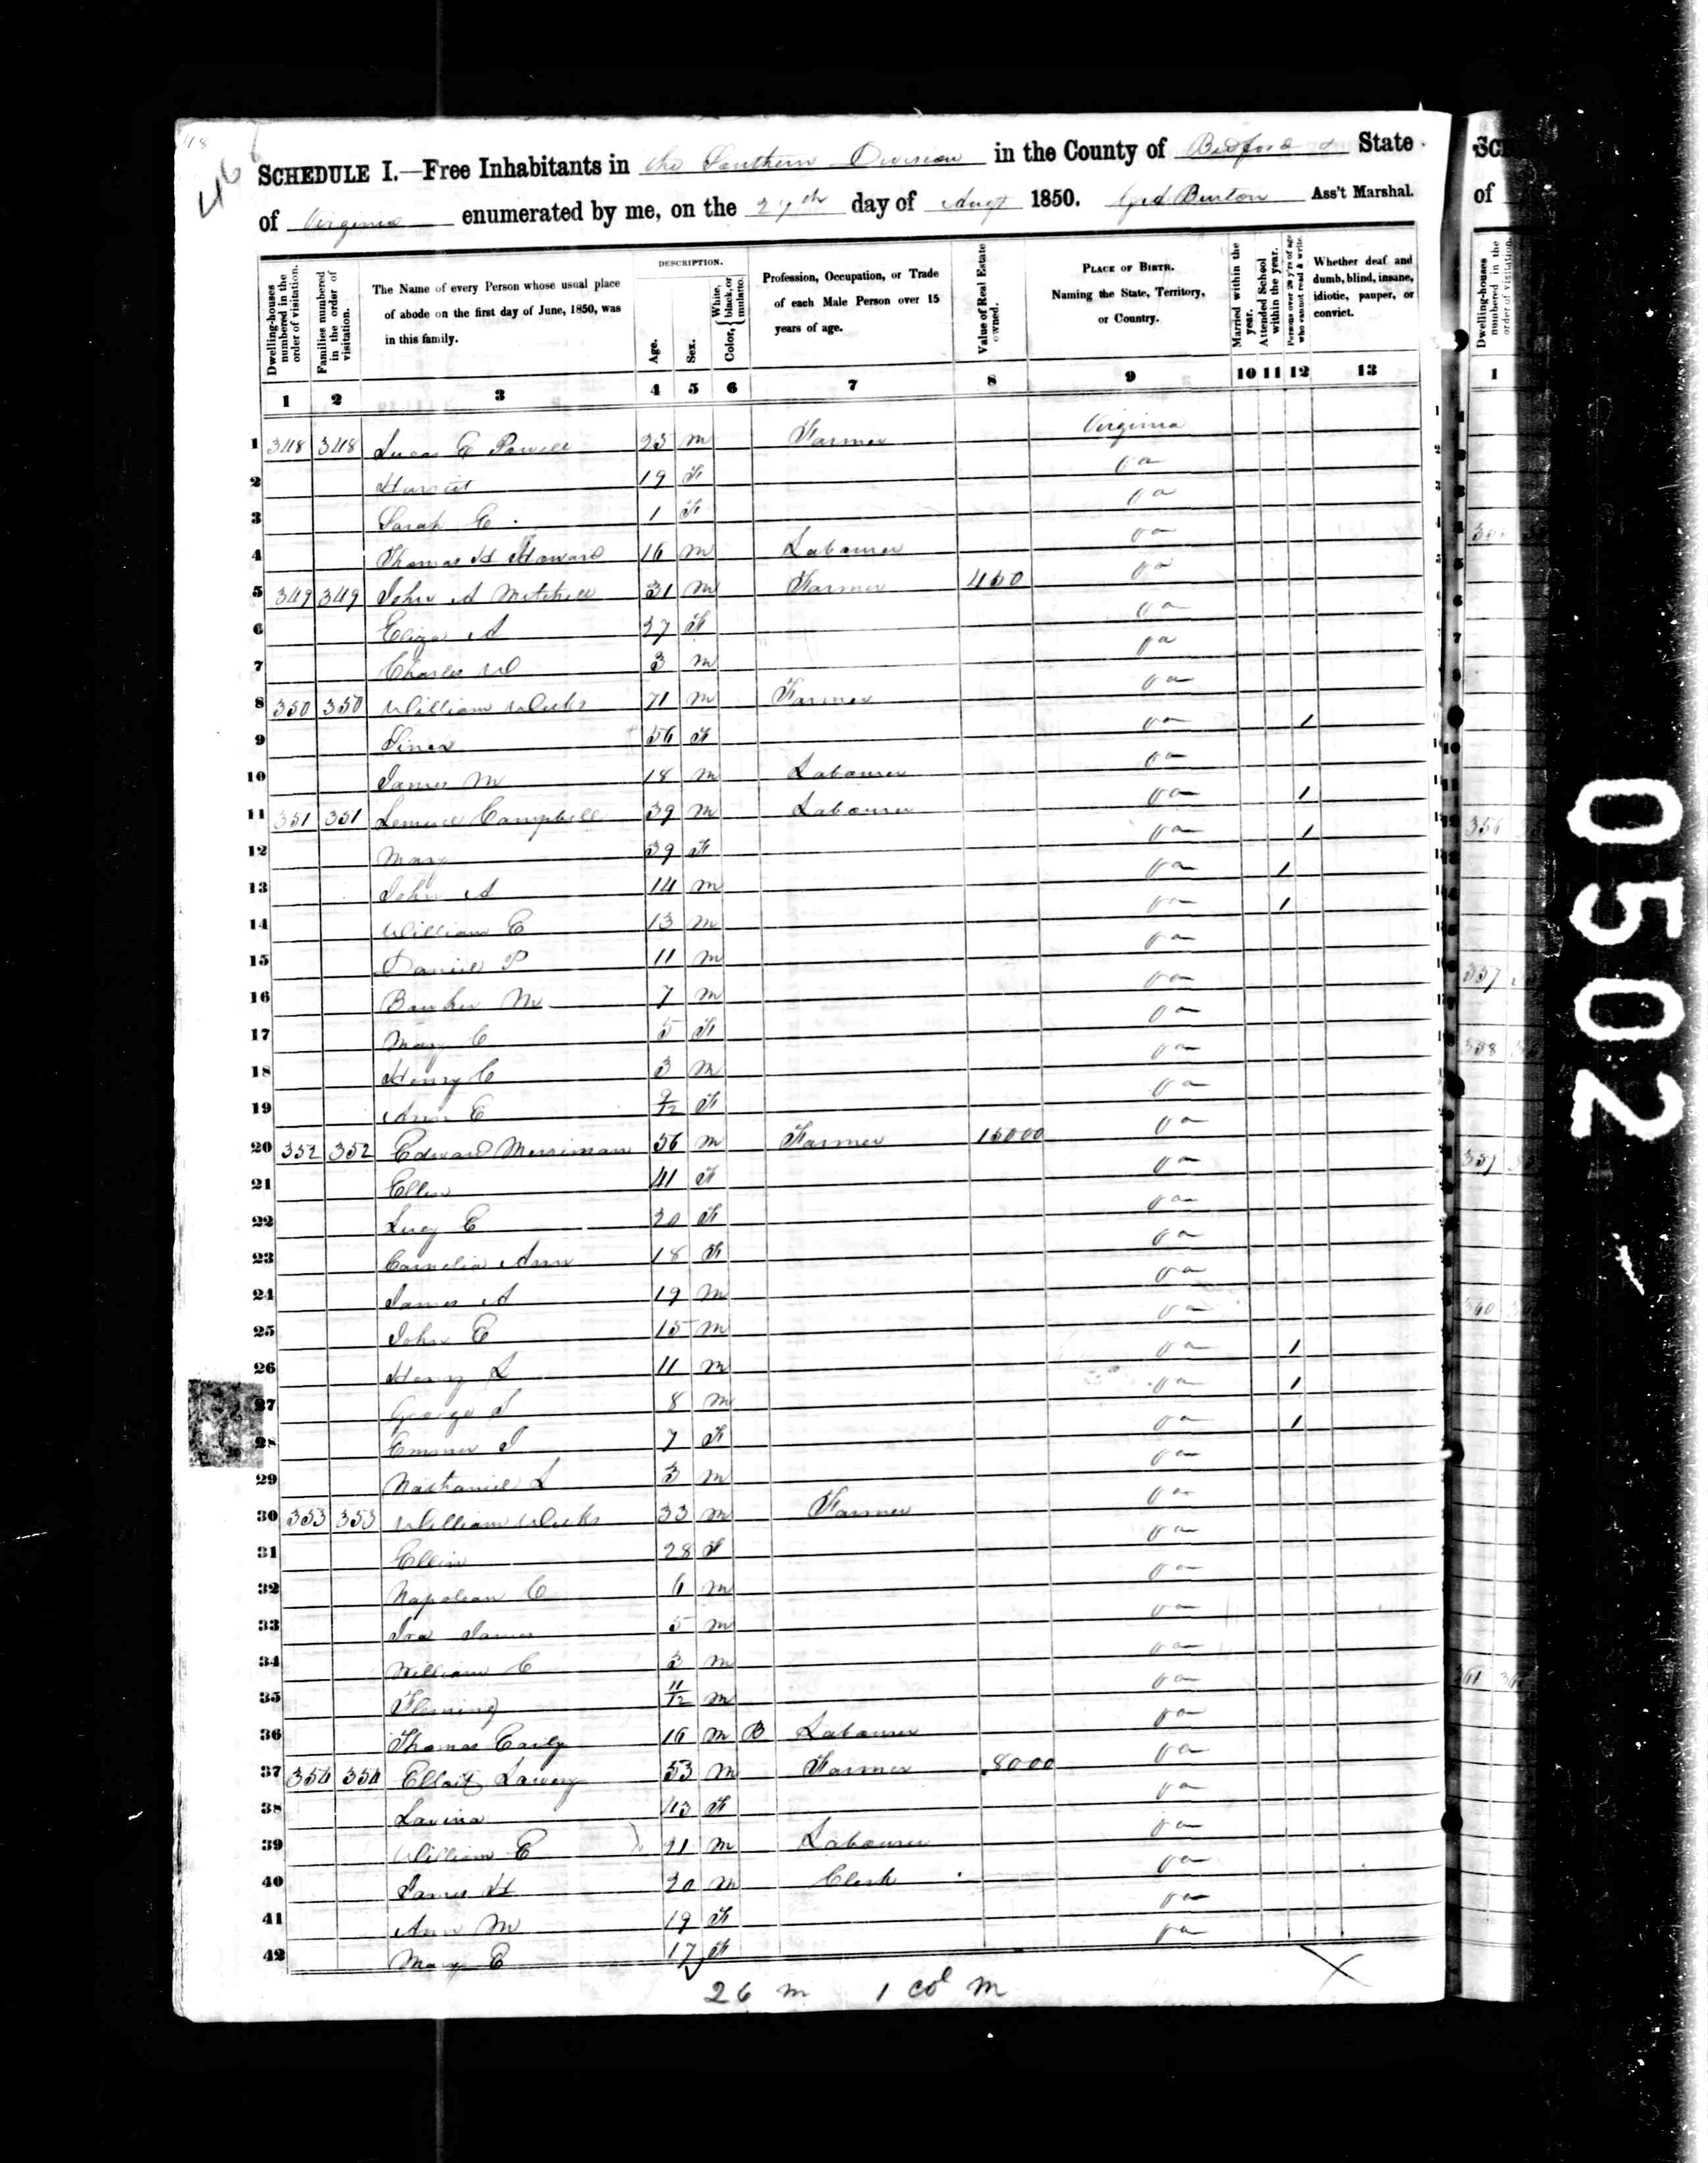 SCHEDULE I.—Free Inhabitants in the Southern Division in the County of Bedford State
of Virginia enumerated by me, on the 27th day of Augt 1850. Burton Ass't Marshal.
Dwelling-houses numbered in the order of visitation.
Families numbered in the order of visitation.
The Name of every Person whose usual place of abode on the first day of June, 1850, was in this family.
DESCRIPTION.
Age.
Sex.
Color, { White, black, or mulatto.
Profession, Occupation, or Trade of each Male Person over 15 years of age.
Value of Real Estate owned.
PLACE OF BIRTH. Naming the State, Territory, or Country.
Married within the year.
Attended School within the year.
Persons over 20 y'rs of age who cannot read & write.
Whether deaf and dumb, blind, insane, idiotic, pauper, or convict.
1 2 3 4 5 6 7 8 9 10 11 12 13
1 348 348 Lucas E Powell 23 m Farmer Virginia
2 Harriet 19 F Va
3 Sarah E 1 F Va
4 Thomas H Howard 16 m Labourer Va
5 349 349 John A Mitchell 31 m Farmer 450 Va
6 Eliza A 27 F Va
7 Charles W 3 m Va
8 350 350 William Weeks 71 m Farmer Va
9 56 F Va 1
10 James M 18 m Labourer Va
11 351 351 Lemuel Campbell 39 m Labourer Va 1
12 Mary 39 F Va 1
13 John A 14 m Va 1
14 William E 13 m Va 1
15 Daniel P 11 m Va
16 M 7 m Va
17 Mary C 5 F Va
18 Henry C 3 m Va
19 Ann E 9/12 F Va
20 352 352 Edward Merriman 56 m Farmer 15000 Va
21 Ellen 41 F Va
22 Lucy E 20 F Va
23 Cornelia Ann 18 F Va
24 James A 19 m Va
25 John E 15 m Va
26 Henry L 11 m Va 1
27 George T 8 m Va 1
28 Emma J 7 F Va 1
29 Nathaniel L 3 m Va
30 353 353 William Weeks 33 m Farmer Va
31 Ellen 28 F Va
32 Napolean C 6 m Va
33 Ira James 5 m Va
34 William C 3 m Va
35 Fleming 11/12 m Va
36 Thomas Early 16 m B Labourer Va
37 354 354 Lowry 53 m Farmer 8000 Va
38 Lavina 43 F Va
39 William E 21 m Labourer Va
40 James H 20 m Clerk Va
41 Ann M 19 F Va
42 Mary E 17 F Va
26 m 1 col m
0502